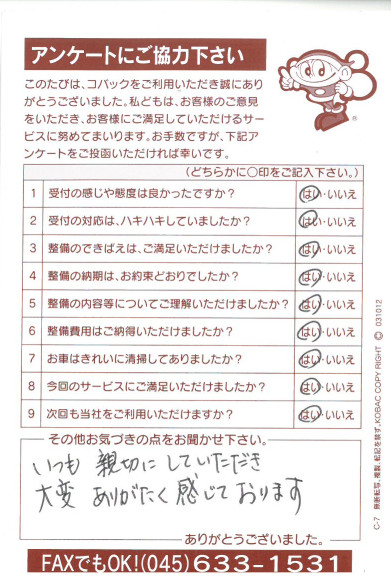 アンケートにご協力下さい
このたびは、コバックをご利用いただき誠にあり
がとうございました。私どもは、お客様のご意見
をいただき、お客様にご満足していただけるサー
ビスに努めてまいります。お手数ですが、下記ア
ンケートをご投函いただければ幸いです。
(どちらかに○印をご記入下さい。)
1 受付の感じや態度は良かったですか? はい・いいえ
2 受付の対応は、ハキハキしていましたか? はい・いいえ
3 整備のできばえは、ご満足いただけましたか? はい・いいえ
4 整備の納期は、お約束どおりでしたか? はい・いいえ
5 整備の内容等についてご理解いただけましたか? はい・いいえ
6 整備費用はご納得いただけましたか? はい・いいえ
7 お車はきれいに清掃してありましたか? はい・いいえ
8 今回のサービスにご満足いただけましたか? はい・いいえ
9 次回も当社をご利用いただけますか? はい・いいえ
その他お気づきの点をお聞かせ下さい。
いつも 親切にしていただき
大変 ありがたく感じております
ありがとうございました。
FAXでもOK!(045)633-1531
C-7 無断転写、複製、転記を禁ず。KOBAC COPY RIGHT © 031012
®